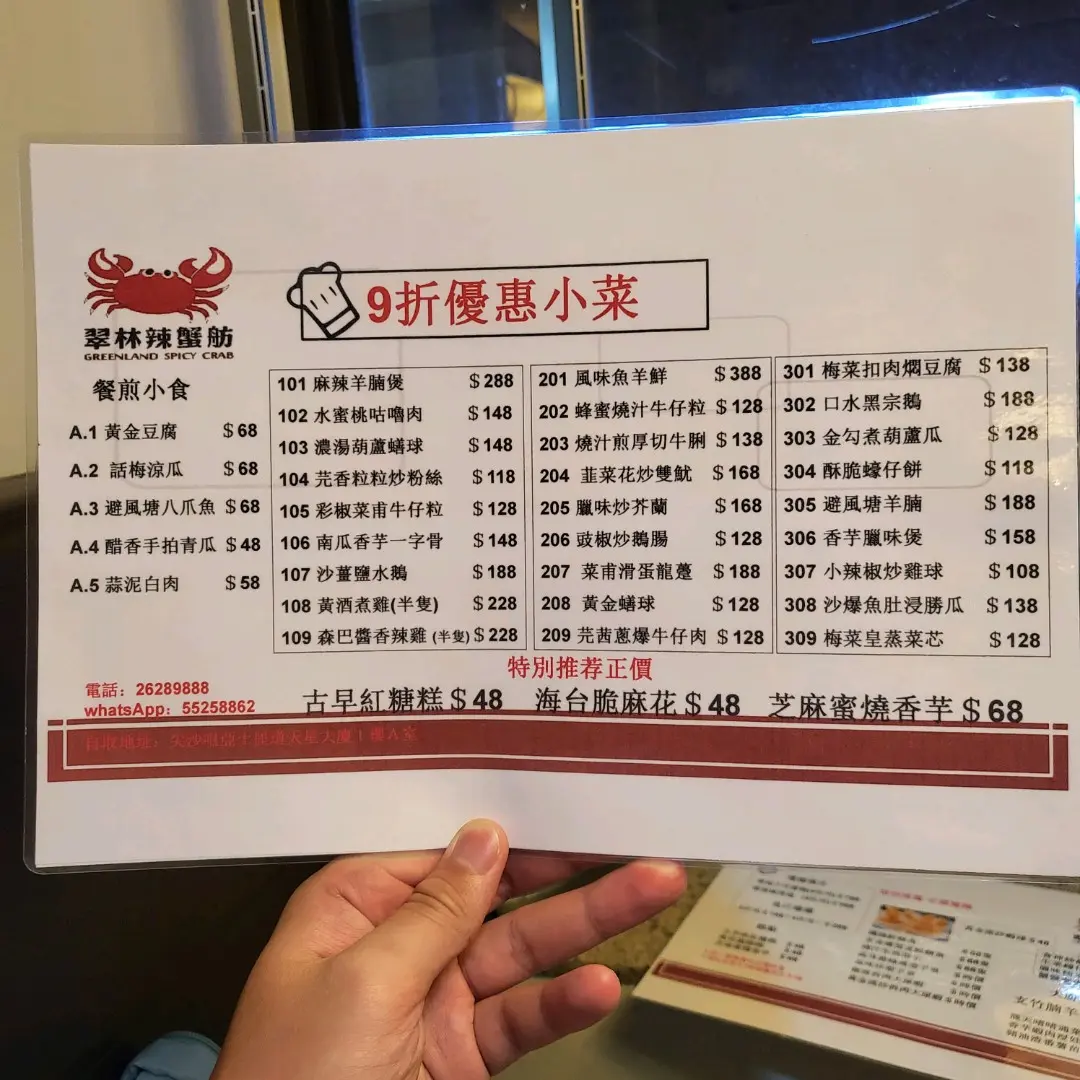 翠林辣蟹舫
GREENLAND SPICY CRAB
9折優惠小菜
餐煎小食
A.1 黃金豆腐 $68
A.2 話梅涼瓜 $68
A.3 避風塘八爪魚 $68
A.4 醋香手拍青瓜 $48
A.5 蒜泥白肉 $58
101 麻辣羊腩煲 $288
102 水蜜桃咕嚕肉 $148
103 濃湯葫蘆蟮球 $148
104 芫香粒粒炒粉絲 $118
105 彩椒菜甫牛仔粒 $128
106 南瓜香芋一字骨 $148
107 沙薑鹽水鵝 $188
108 黃酒煮雞(半隻) $228
109 森巴醬香辣雞 (半隻) $228
201 風味魚羊鮮 $388
202 蜂蜜燒汁牛仔粒 $128
203 燒汁煎厚切牛脷 $138
204 韮菜花炒雙魷 $168
205 臘味炒芥蘭 $168
206 豉椒炒鵝腸 $128
207 菜甫滑蛋龍躉 $188
208 黃金蟮球 $128
209 芫茜蔥爆牛仔肉 $128
301 梅菜扣肉燜豆腐 $138
302 口水黑宗鵝 $188
303 金勾煮葫蘆瓜 $128
304 酥脆蠔仔餅 $118
305 避風塘羊腩 $188
306 香芋臘味煲 $158
307 小辣椒炒雞球 $108
308 沙爆魚肚浸勝瓜 $138
309 梅菜皇蒸菜芯 $128
特別推荐正價
古早紅糖糕 $48 海台脆麻花 $48 芝麻蜜燒香芋 $68
電話：26289888
whatsApp：55258862
自取地址：尖沙咀亞士厘道天星大廈1樓A室